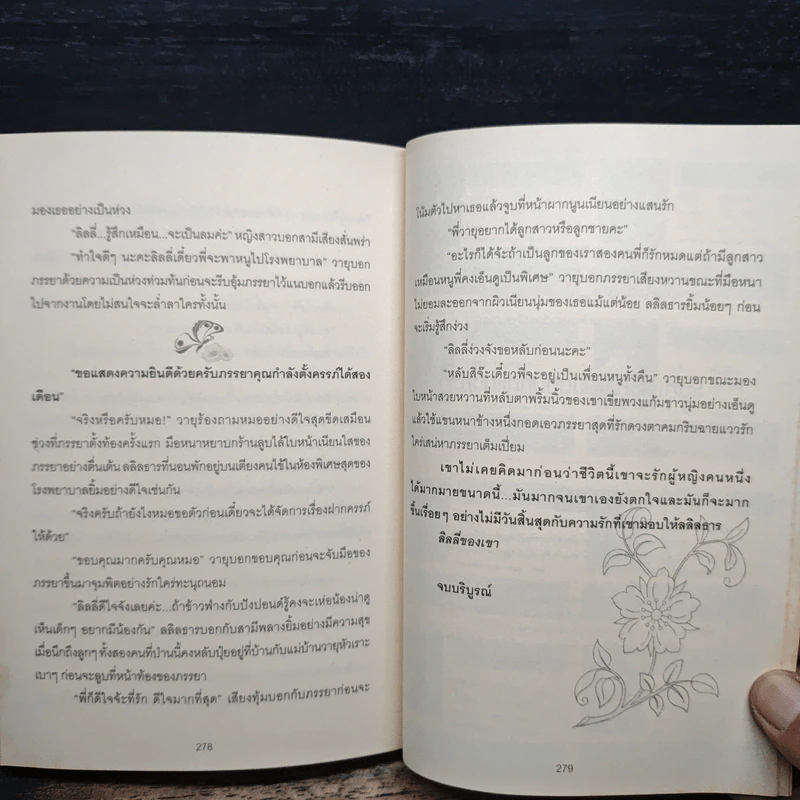 มองเธออย่างเป็นห่วง
“ลิลลี่...รู้สึกเหมือน...จะเป็นลมค่ะ” หญิงสาวบอกสามีเสียงสั่นพร่า
“ทำใจดีๆ นะคะลิลลี่เดี๋ยวพี่จะพาหนูไปโรงพยาบาล” วายุบอก
ภรรยาด้วยความเป็นห่วงท่วมท้นก่อนจะรีบอุ้มภรรยาไว้แนบอกแล้วรีบออก
ไปจากงานโดยไม่สนใจจะล่ำลาใครทั้งนั้น
“ขอแสดงความยินดีด้วยครับภรรยาคุณกำลังตั้งครรภ์ได้สอง
เดือน”
“จริงหรือครับหมอ!” วายุร้องถามหมออย่างดีใจสุดขีดเสมือน
ช่วงที่ภรรยาตั้งท้องครั้งแรก มือหนาหยาบกร้านลูบไล้ใบหน้าเนียนใสของ
ภรรยาอย่างตื่นเต้น ลลิลธารที่นอนพักอยู่บนเตียงคนไข้ในห้องพิเศษสุดของ
โรงพยาบาลยิ้มอย่างดีใจเช่นกัน
“จริงครับถ้ายังไงหมอขอตัวก่อนเดี๋ยวจะได้จัดการเรื่องฝากครรภ์
ให้ด้วย”
“ขอบคุณมากครับคุณหมอ” วายุบอกขอบคุณก่อนจะจับมือของ
ภรรยาขึ้นมาจุมพิตอย่างรักใคร่ทะนุถนอม
“ลิลลี่ดีใจจังเลยค่ะ...ถ้าข้าวฟ่างกับปังปอนด์รู้คงจะเห่อน้องน่าดู
เห็นเด็กๆ อยากมีน้องกัน” ลลิลธารบอกกับสามีพลางยิ้มอย่างมีความสุข
เมื่อนึกถึงลูกๆ ทั้งสองคนที่ป่านนี้คงหลับปุ๋ยอยู่ที่บ้านกับแม่บ้านวายุหัวเราะ
เบาๆ ก่อนจะลูบที่หน้าท้องของภรรยา
“พี่ก็ดีใจจ้ะที่รัก ดีใจมากที่สุด” เสียงทุ้มบอกกับภรรยาก่อนจะ
278
โน้มตัวไปหาเธอแล้วจูบที่หน้าผากนูนเนียนอย่างแสนรัก
“พี่วายุอยากได้ลูกสาวหรือลูกชายคะ”
“อะไรก็ได้จ้ะถ้าเป็นลูกของเราสองคนพี่ก็รักหมดแต่ถ้ามีลูกสาว
เหมือนหนูพี่คงเอ็นดูเป็นพิเศษ” วายุบอกภรรยาเสียงหวานขณะที่มือหนา
ไม่ยอมละออกจากผิวเนียนนุ่มของเธอแม้แต่น้อย ลลิลธารยิ้มน้อยๆ ก่อน
จะเริ่มรู้สึกง่วง
“ลิลลี่ง่วงจังขอหลับก่อนนะคะ”
“หลับสิจ๊ะเดี๋ยวพี่จะอยู่เป็นเพื่อนหนูทั้งคืน” วายุบอกขณะมอง
ใบหน้าสวยหวานที่หลับตาพริ้มนิ้วของเขาเขี่ยพวงแก้มขาวนุ่มอย่างเอ็นดู
แล้วใช้แขนหนาข้างหนึ่งกอดเอวภรรยาสุดที่รักดวงตาคมกริบฉายแววรัก
ใคร่เสน่หาภรรยาเต็มเปี่ยม
เขาไม่เคยคิดมาก่อนว่าชีวิตนี้เขาจะรักผู้หญิงคนหนึ่ง
ได้มากมายขนาดนี้...มันมากจนเขาเองยังตกใจและมันก็จะมาก
ขึ้นเรื่อยๆ อย่างไม่มีวันสิ้นสุดกับความรักที่เขามอบให้ลลิลธาร
ลิลลี่ของเขา
จบบริบูรณ์
279